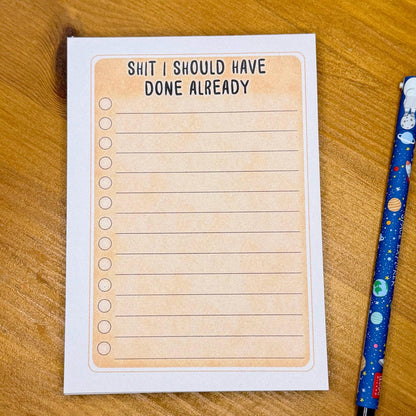 SHIT I SHOULD HAVE
DONE ALREADY